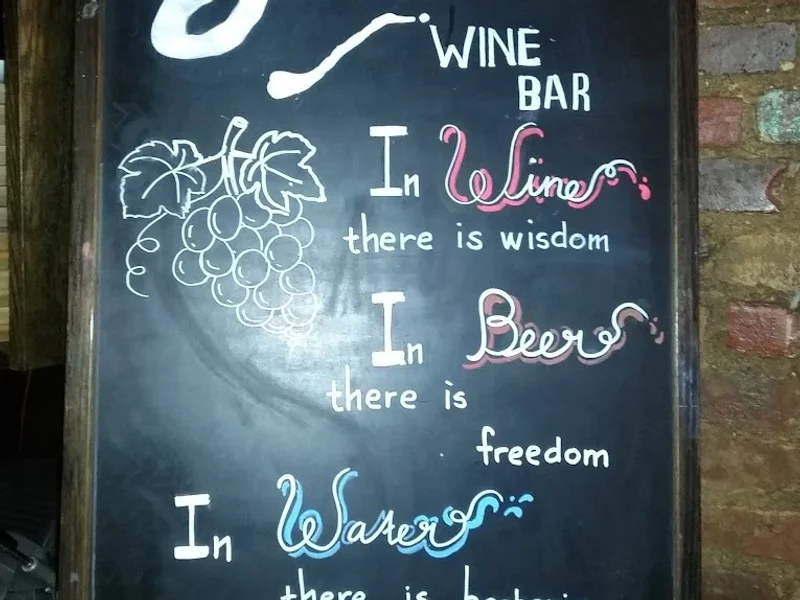 WINE
BAR
In Wine
there is wisdom
In Beer
there is
freedom
In Water
there is bacteria